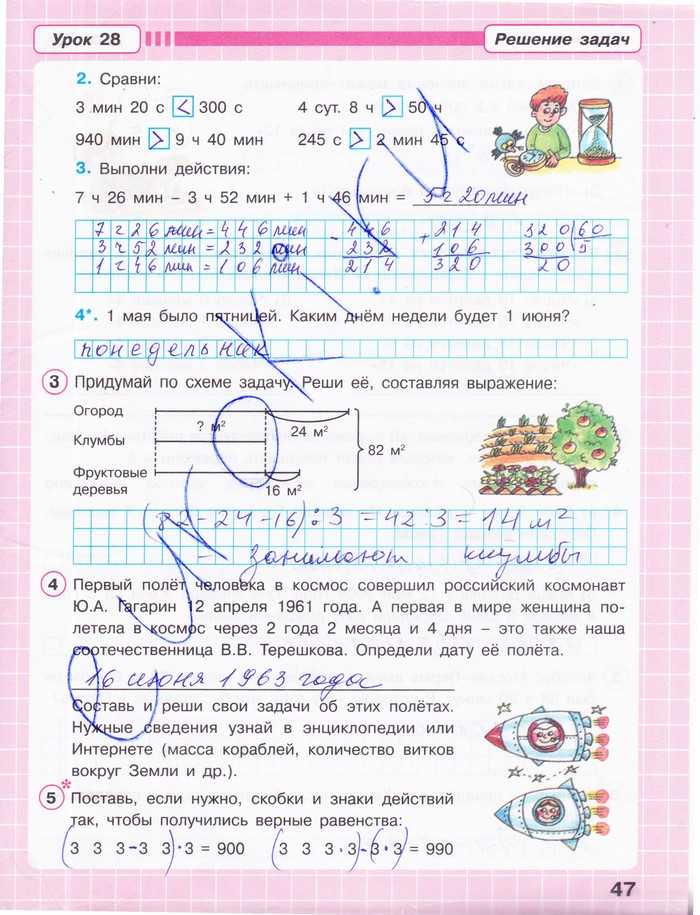 Урок 28
Решение задач
2. Сравни:
3 мин 20 с < 300 с 4 сут. 8 ч > 50 ч
940 мин > 9 ч 40 мин 245 с > 2 мин 45 с
3. Выполни действия:
7 ч 26 мин – 3 ч 52 мин + 1 ч 46 мин = 5 ч 20 мин
7 ч 26 мин = 446 мин - 446 + 214 320 60
3 ч 52 мин = 232 мин 232 106 300 5
1 ч 46 мин = 106 мин 214 320 20
4*. 1 мая было пятницей. Каким днём недели будет 1 июня?
понедельник
3 Придумай по схеме задачу. Реши её, составляя выражение:
Огород
? м² 24 м²
Клумбы
82 м²
Фруктовые
деревья 16 м²
(82-24-16):3 = 42:3 = 14 м²
- занимают клумбы
4 Первый полёт человека в космос совершил российский космонавт
Ю.А. Гагарин 12 апреля 1961 года. А первая в мире женщина по-
летела в космос через 2 года 2 месяца и 4 дня – это также наша
соотечественница В.В. Терешкова. Определи дату её полёта.
16 июня 1963 года
Составь и реши свои задачи об этих полётах.
Нужные сведения узнай в энциклопедии или
Интернете (масса кораблей, количество витков
вокруг Земли и др.).
5* Поставь, если нужно, скобки и знаки действий
так, чтобы получились верные равенства:
(3 3 3-3 3)·3 = 900 (3 3 3·3)-(3·3) = 990
47
УРОКИ.RU